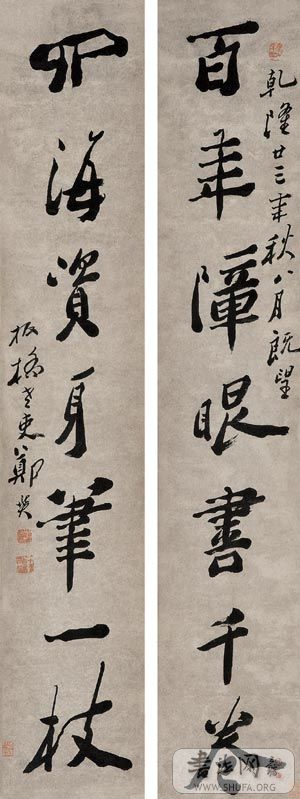 百年障眼書千卷
乾隆廿三年秋八月既望
四海資身筆一枝
板橋老人鄭燮
书法网
WWW.SHUFA.ORG